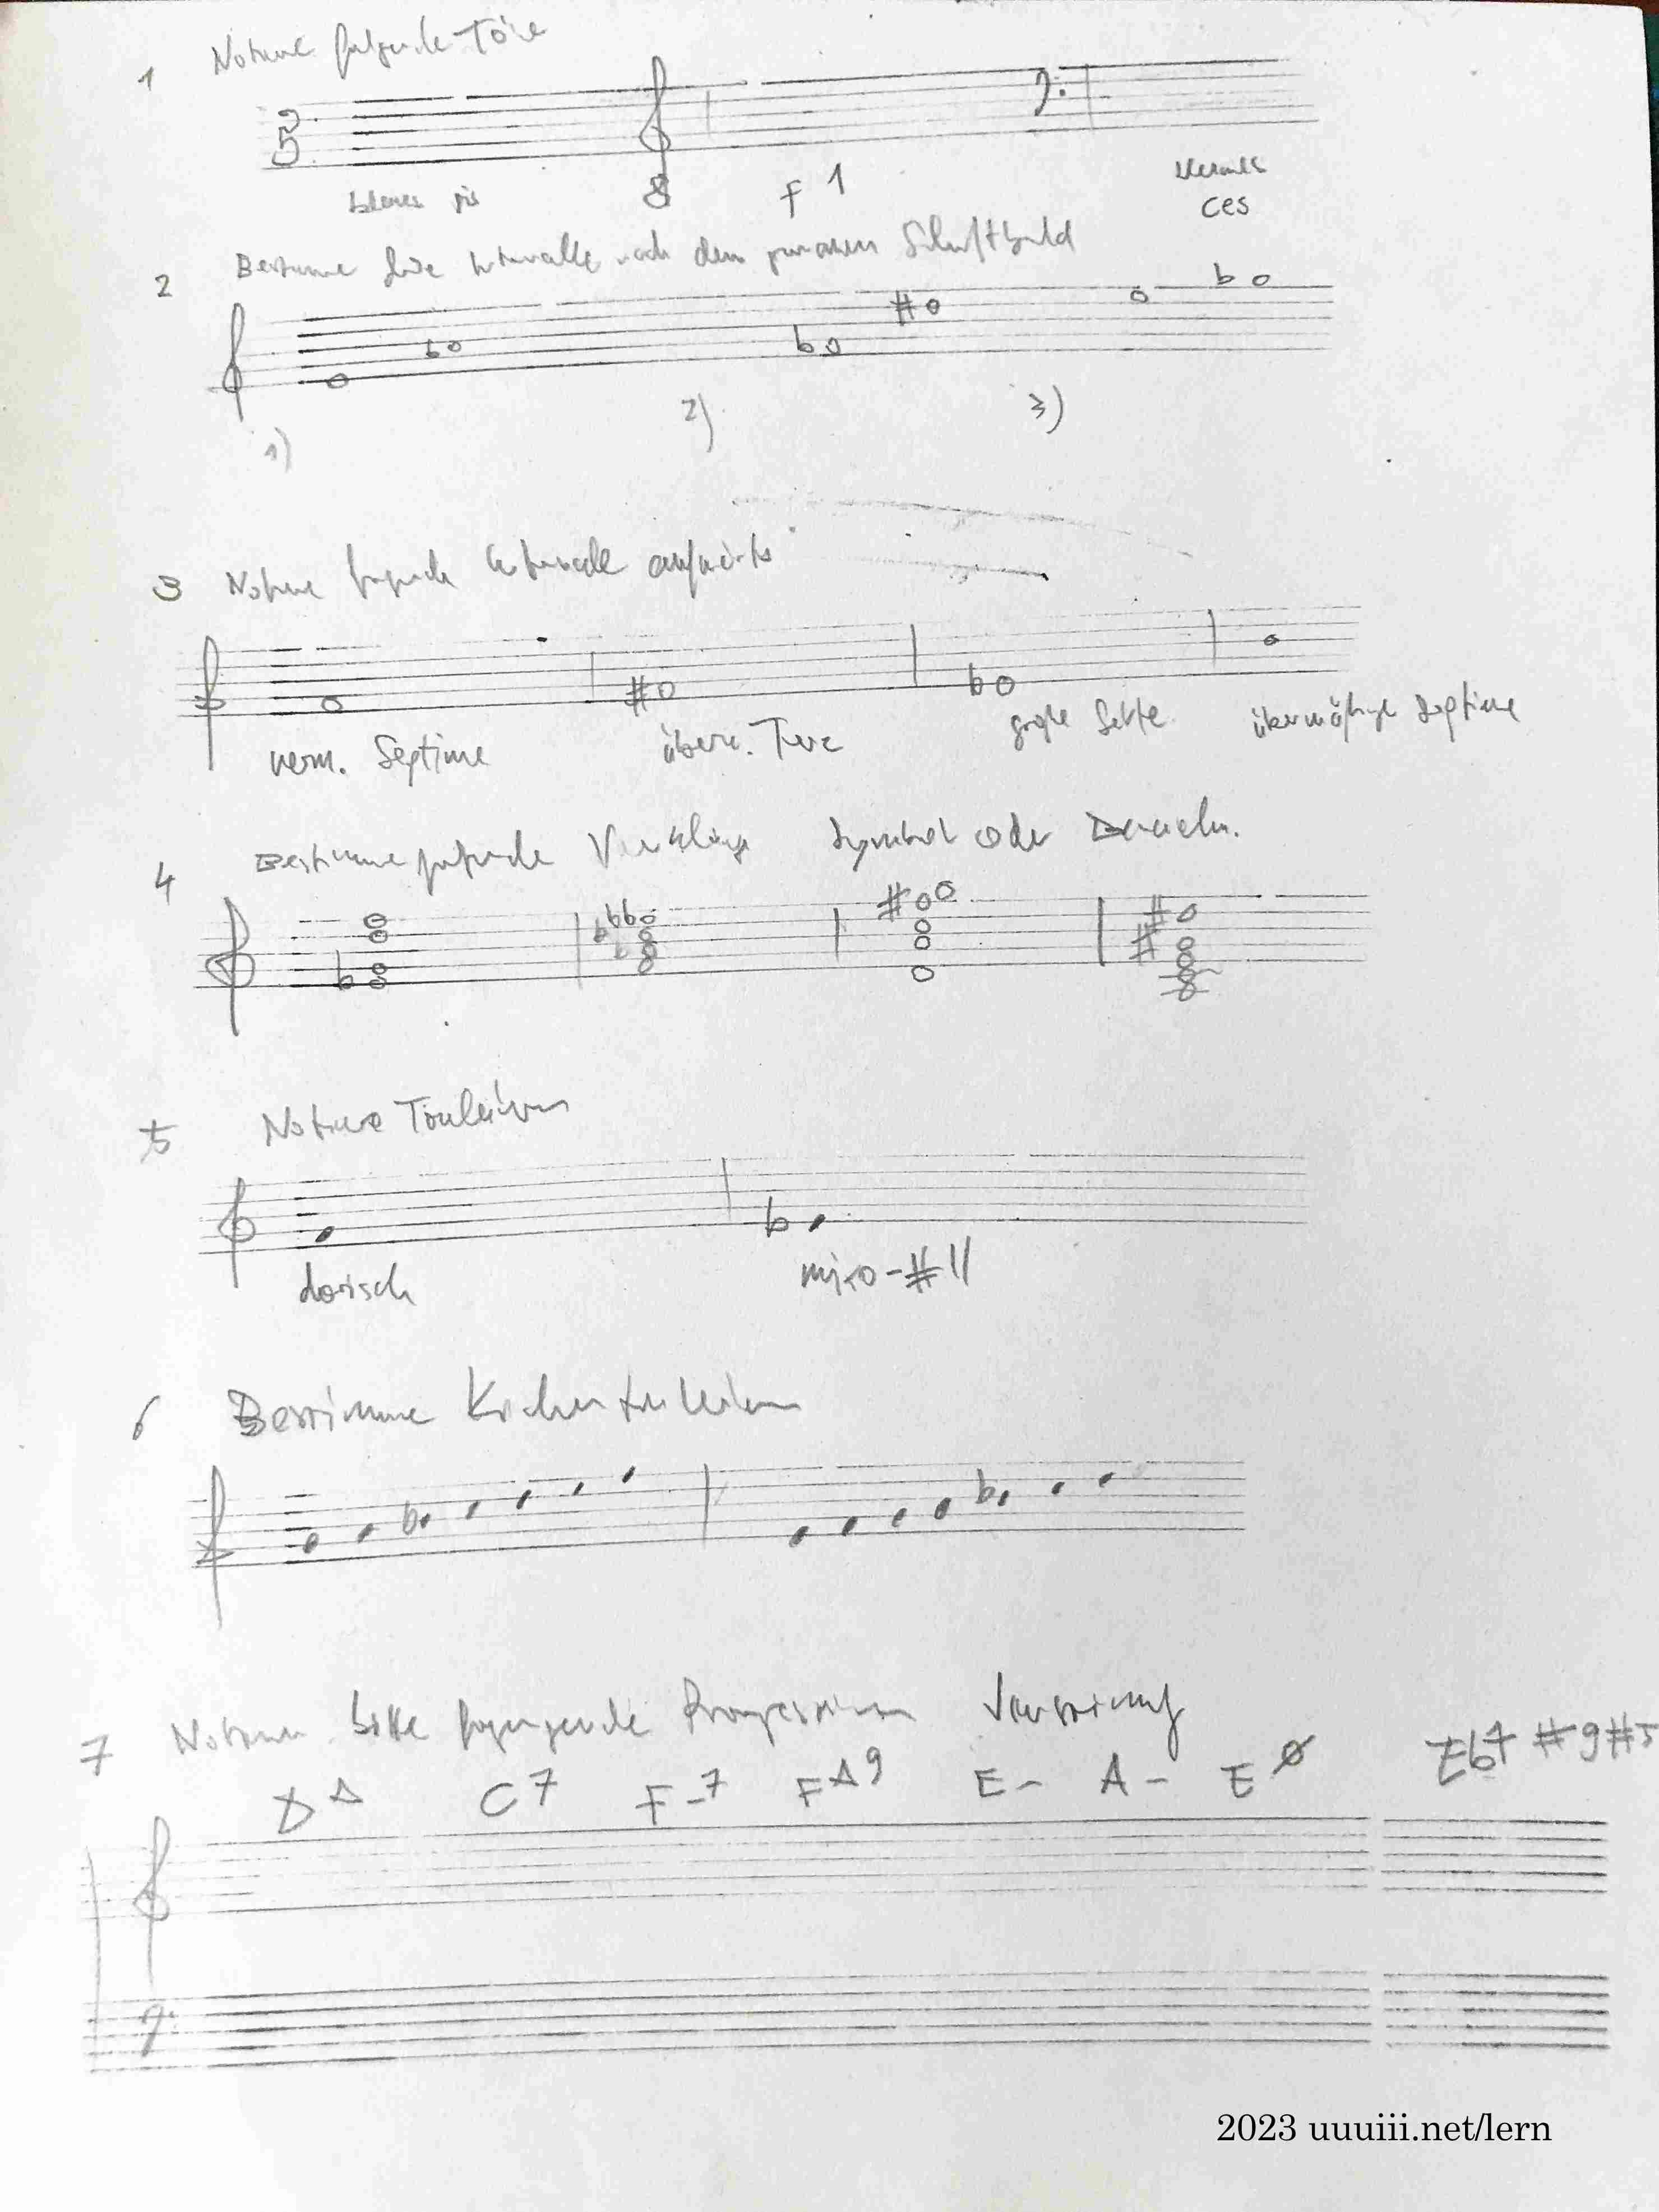 1 Notiere folgende Töne
8 F 1
ces
2 Bestimme Intervalle nach dem genauen Schriftbild
1) 2) 3)
3 Notiere folgende Intervalle aufwärts
verm. Septime überm. Terz große Sexte übermäßige Septime
4 Bestimme folgende Vierklänge Symbol oder
5 Notiere Tonleitern
dorisch mixo-#11
6 Bestimme Kirchentonleitern
7 bitte
D Δ C7 F-7 FΔ9 E- A- E ø Eb7 #9#5
2023 uuuiii.net/lern